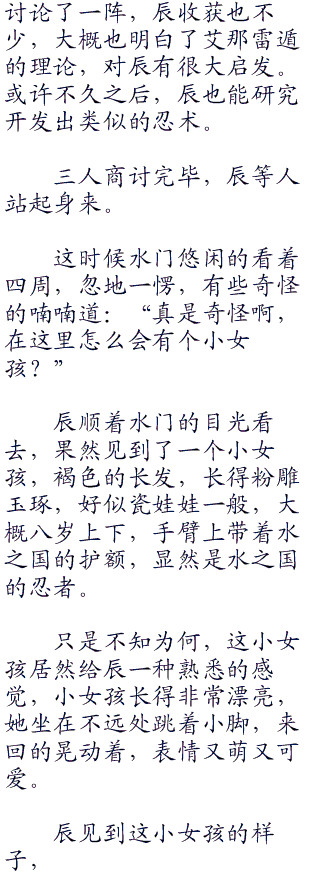 讨论了一阵，辰收获也不
少，大概也明白了艾那雷遁
的理论，对辰有很大启发。
或许不久之后，辰也能研究
开发出类似的忍术。
三人商讨完毕，辰等人
站起身来。
这时候水门悠闲的看着
四周，忽地一愣，有些奇怪
的喃喃道：“真是奇怪啊，
在这里怎么会有个小女
孩？”
辰顺着水门的目光看
去，果然见到了一个小女
孩，褐色的长发，长得粉雕
玉琢，好似瓷娃娃一般，大
概八岁上下，手臂上带着水
之国的护额，显然是水之国
的忍者。
只是不知为何，这小女
孩居然给辰一种熟悉的感
觉，小女孩长得非常漂亮，
她坐在不远处跳着小脚，来
回的晃动着，表情又萌又可
爱。
辰见到这小女孩的样
子，